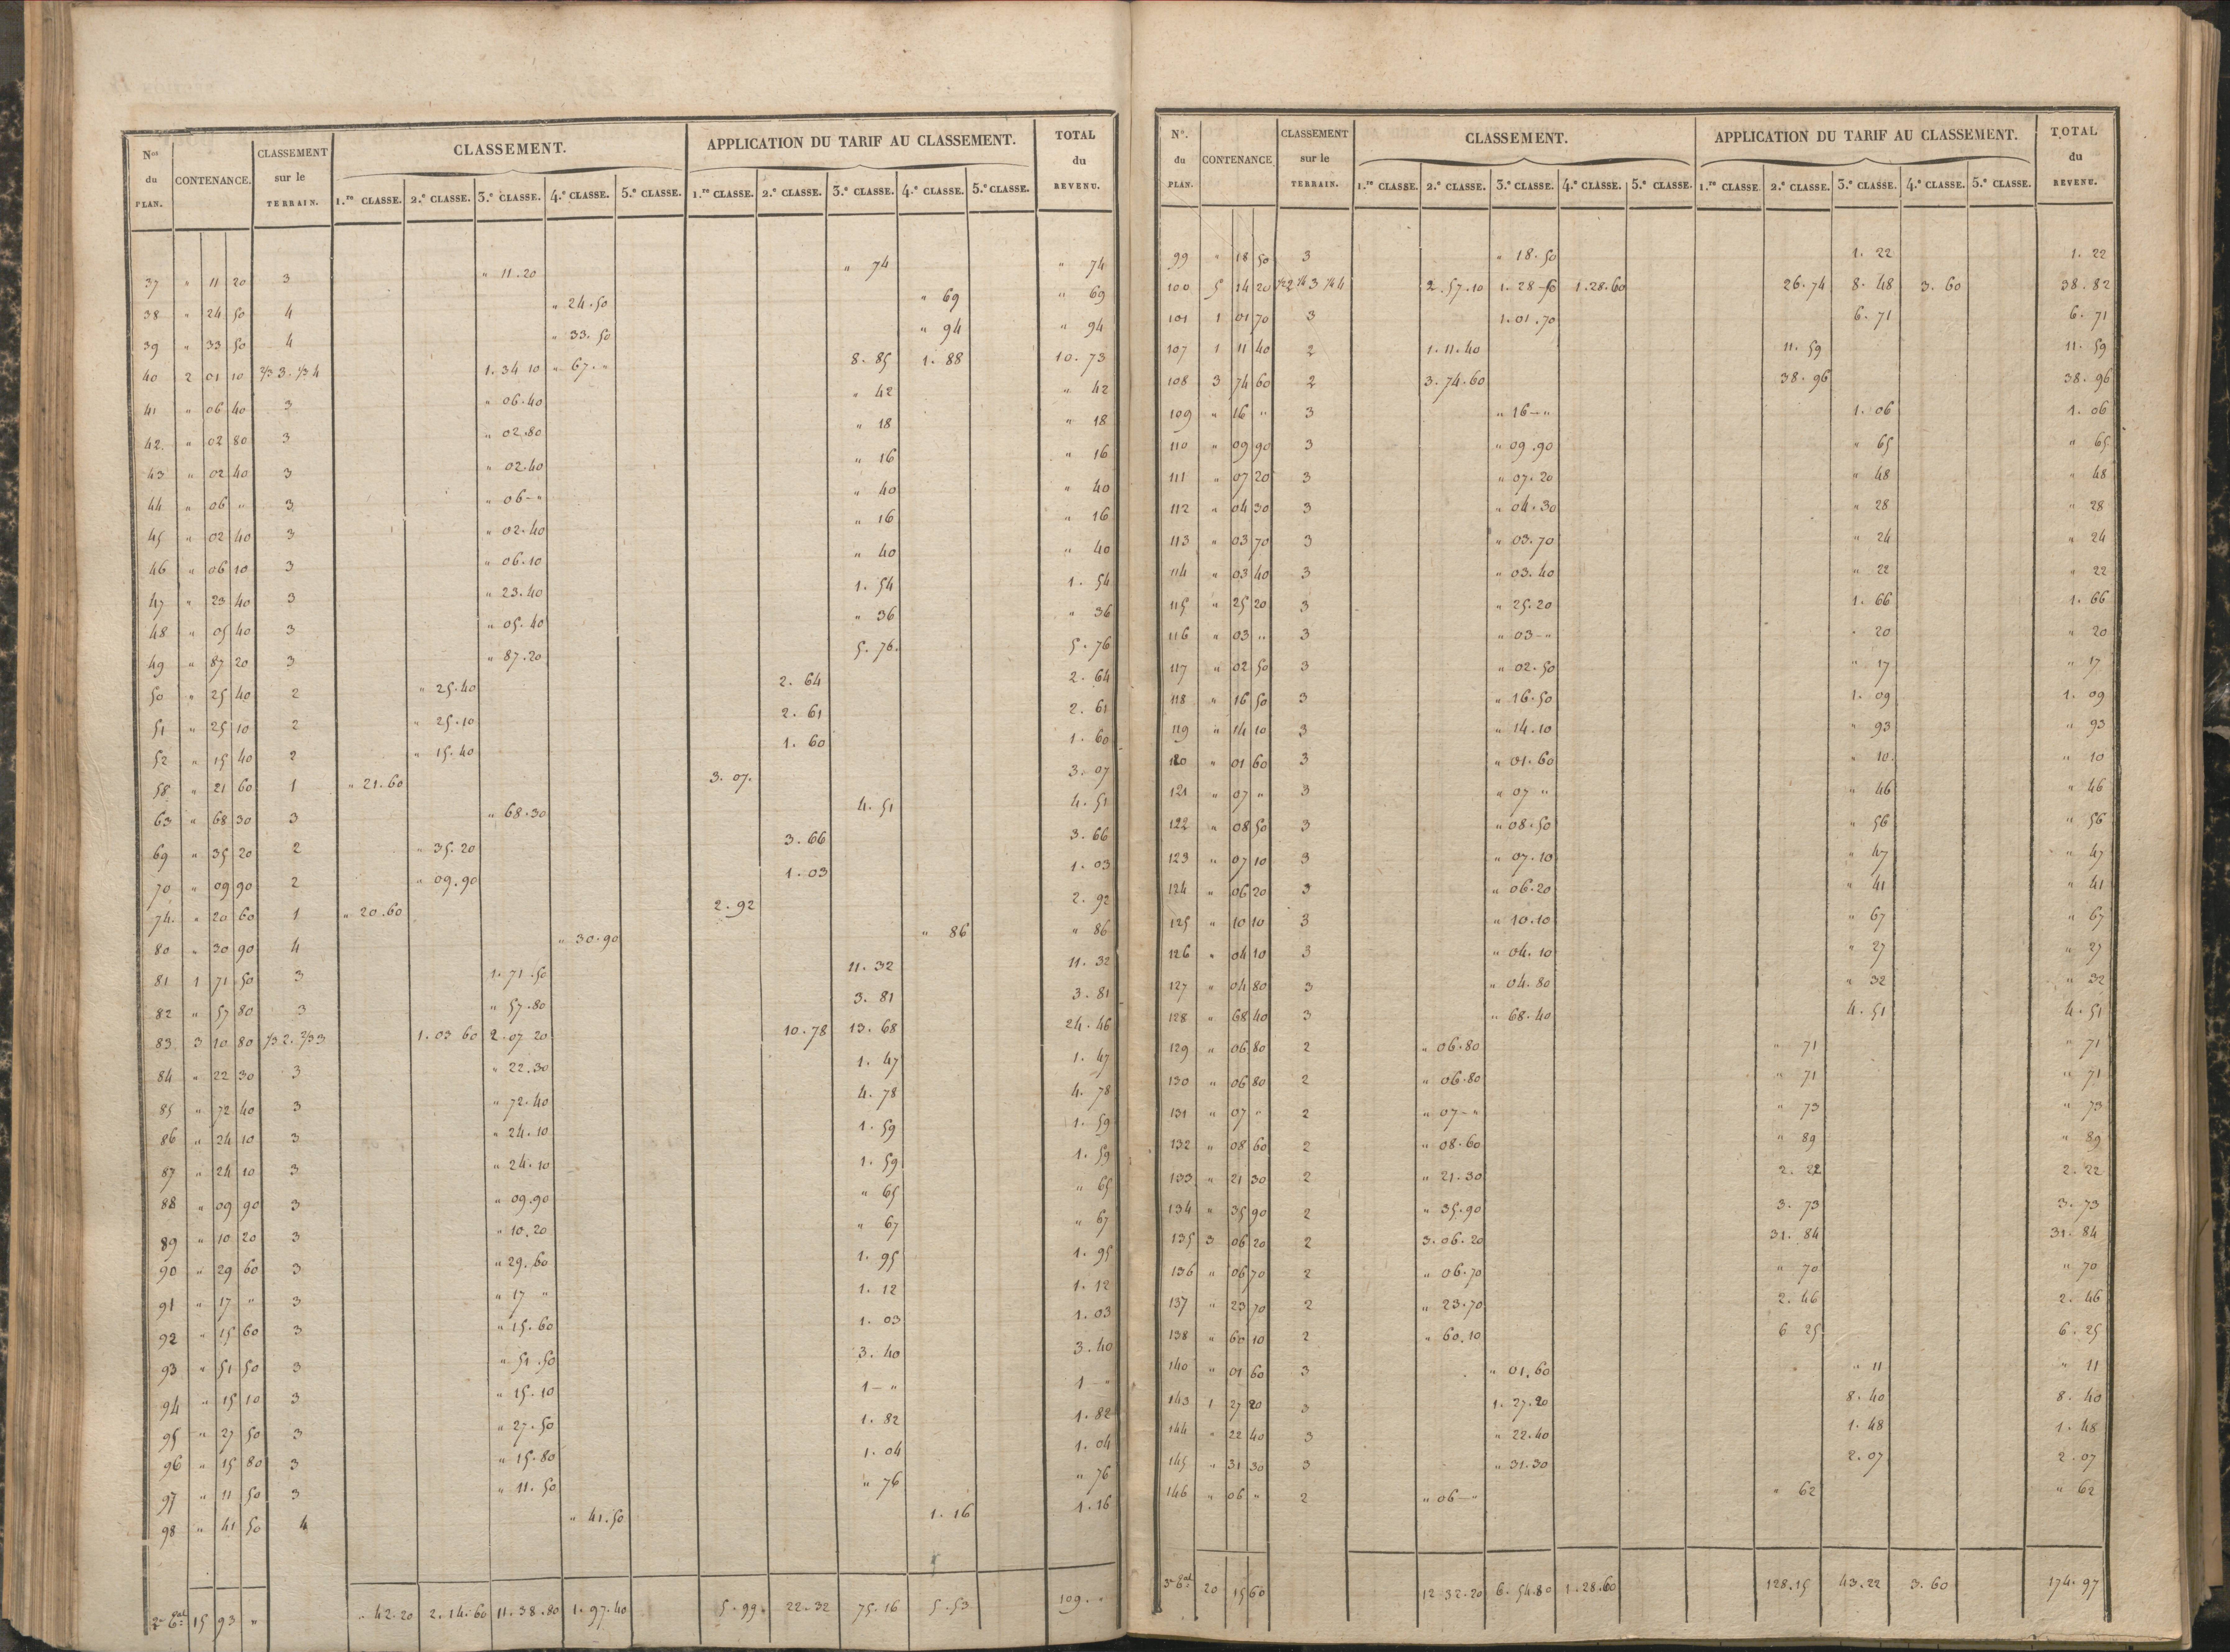 Nos du PLAN. CONTENANCE. CLASSEMENT sur le TERRAIN. CLASSEMENT. APPLICATION DU TARIF AU CLASSEMENT. TOTAL du REVENU.
1.re CLASSE. 2.e CLASSE. 3.e CLASSE. 4.e CLASSE. 5.e CLASSE. 1.re CLASSE. 2.e CLASSE. 3.e CLASSE. 4.e CLASSE. 5.e CLASSE.
37 " 11 20 3 " 11.20 " 74 " 74
38 " 24 50 4 " 24.50 " 69 " 69
39 " 33 50 4 " 33.50 " 94 " 94
40 2 01 10 2/3 3. 1/3 4 1.34 10 " 67." 8. 85 1. 88 10. 73
41 " 06 40 3 " 06.40 " 42 " 42
42. " 02 80 3 " 02.80 " 18 " 18
43 " 02 40 3 " 02.40 " 16 " 16
44 " 06 " 3 " 06-" " 40 " 40
45 " 02 40 3 " 02.40 " 16 " 16
46 " 06 10 3 " 06.10 " 40 " 40
47 " 23 40 3 " 23.40 1. 54 1. 54
48 " 05 40 3 " 05.40 " 36 " 36
49 " 87 20 3 " 87.20 5. 76. 5. 76
50 " 25 40 2 " 25.40 2. 64 2. 64
51 " 25 10 2 " 25.10 2. 61 2. 61
52 " 15 40 2 " 15.40 1. 60 1. 60
58 " 21 60 1 " 21.60 3. 07. 3. 07
63 " 68 30 3 " 68.30 4. 51 4. 51
69 " 35 20 2 " 35.20 3. 66 3. 66
70 " 09 90 2 " 09.90 1. 03 1. 03
74. " 20 60 1 " 20.60 2. 92 2. 92
80 " 30 90 4 " 30.90 " 86 " 86
81 1 71 50 3 1.71.50 11. 32 11. 32
82 " 57 80 3 " 57.80 3. 81 3. 81
83 3 10 80 1/3 2. 2/3 3 1.03 60 2.07 20 10.78 13. 68 24.46
84 " 22 30 3 " 22.30 1. 47 1. 47
85 " 72 40 3 " 72.40 4. 78 4. 78
86 " 24 10 3 " 24.10 1. 59 1. 59
87 " 24 10 3 " 24.10 1. 59 1. 59
88 " 09 90 3 " 09.90 " 65 " 65
89 " 10 20 3 " 10.20 " 67 " 67
90 " 29 60 3 " 29.60 1. 95 1. 95
91 " 17 " 3 " 17 " 1. 12 1. 12
92 " 15 60 3 " 15.60 1. 03 1. 03
93 " 51 50 3 " 51.50 3. 40 3. 40
94 " 15 10 3 " 15.10 1-" 1-"
95 " 27 50 3 " 27.50 1. 82 1. 82
96 " 15 80 3 " 15.80 1. 04 1. 04
97 " 11 50 3 " 11.50 " 76 " 76
98 " 41 50 4 " 41.50 1. 16 1. 16
15 93 " " 42.20 2.14.60 11.38.80 1.97.40 5.99. 22.32 75.16 5.53 109. "
No. du PLAN. CONTENANCE CLASSEMENT sur le TERRAIN. CLASSEMENT. APPLICATION DU TARIF AU CLASSEMENT. TOTAL du REVENU.
1.re CLASSE. 2.e CLASSE. 3.e CLASSE. 4.e CLASSE. 5.e CLASSE. 1.re CLASSE. 2.e CLASSE. 3.e CLASSE. 4.e CLASSE. 5.e CLASSE.
99 " 18 50 3 " 18.50 1. 22 1. 22
100 5 14 20 1/2 2 1/4 3 1/4 4 2.57.10 1.28-50 1.28.60 26.74 8. 48 3. 60 38.82
101 1 01 70 3 1.01.70 6. 71 6. 71
107 1 11 40 2 1.11.40 11. 59 11. 59
108 3 74 60 2 3.74.60 38. 96 38. 96
109 " 16 " 3 " 16-" 1. 06 1. 06
110 " 09 90 3 " 09.90 " 65 " 65
111 " 07 20 3 " 07.20 " 48 " 48
112 " 04 30 3 " 04.30 " 28 " 28
113 " 03 70 3 " 03.70 " 24 " 24
114 " 03 40 3 " 03.40 " 22 " 22
115 " 25 20 3 " 25.20 1. 66 1. 66
116 " 03 " 3 " 03-" " 20 " 20
117 " 02 50 3 " 02.50 " 17 " 17
118 " 16 50 3 " 16.50 1. 09 1. 09
119 " 14 10 3 " 14.10 " 93 " 93
120 " 01 60 3 " 01.60 " 10. " 10
121 " 07 " 3 " 07 " " 46 " 46
122 " 08 50 3 " 08.50 " 56 " 56
123 " 07 10 3 " 07.10 " 47 " 47
124 " 06 20 3 " 06.20 " 41 " 41
125 " 10 10 3 " 10.10 " 67 " 67
126 " 04 10 3 " 04.10 " 27 " 27
127 " 04 80 3 " 04.80 " 32 " 32
128 " 68 40 3 " 68.40 4. 51 4. 51
129 " 06 80 2 " 06.80 " 71 " 71
130 " 06 80 2 " 06.80 " 71 " 71
131 " 07 " 2 " 07-" " 73 " 73
132 " 08 60 2 " 08.60 " 89 " 89
133 " 21 30 2 " 21.30 2. 22 2. 22
134 " 35 90 2 " 35.90 3. 73 3. 73
135 3 06 20 2 3.06.20 31. 84 31. 84
136 " 06 70 2 " 06.70 " 70 " 70
137 " 23 70 2 " 23.70 2. 46 2. 46
138 " 60 10 2 " 60.10 6 25 6. 25
140 " 01 60 3 " 01.60 " 11 " 11
143 1 27 20 3 1.27.20 8. 40 8. 40
144 " 22 40 3 " 22.40 1. 48 1. 48
145 " 31 30 3 " 31.30 2. 07 2. 07
146 " 06 " 2 " 06-" " 62 " 62
20 15 60 12 32.20 6.54.80 1.28.60 128.15 43.22 3.60 174.97